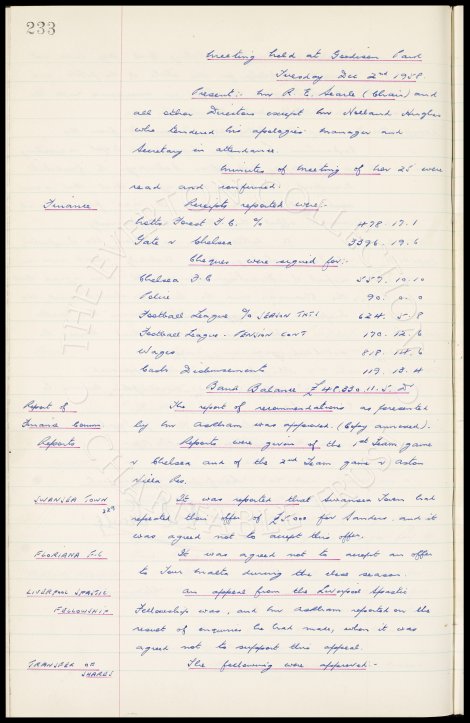 233
Meeting held at Goodison Park
Tuesday Dec 2nd 1958
Present:- Mr R. E. Searle (Chair) and
all other Directors except Mr Holland Hughes
who tendered his apologies. Manager and
Secretary in attendance.
Minutes of meeting of Nov 25 were
read and confirmed.
Finance Receipts reported were:-
Notts Forest F.C. % 478. 17. 1
Gate v Chelsea 3396. 19. 6
Cheques were signed for:-
Chelsea F.C 557. 10. 10
Police 90. 0. 0
Football League % 624. 5. 8
Football League - PENSION CONT 170. 12. 6
Wages 818. 14. 6
Cash Disbursements 119. 13. 4
Bank Balance £48,330. 11. 5.
Report of The report of recommendations as presented
Finance Comm by Mr Askham was approved. (Copy annexed).
Reports Reports were given of the 1st Team game
v Chelsea and of the 2nd Team game v Aston
Villa Res.
SWANSEA TOWN It was reported that Swansea Town had
repeated their offer of £5,000 for Sanders, and it
was agreed not to accept this offer.
FLORIANA F.C It was agreed not to accept an offer
to Tour Malta during the close season.
LIVERPOOL SPASTIC An appeal from the Liverpool Spastic
FELLOWSHIP Fellowship was, and Mr Askham reported on the
result of enquiries he had made, when it was
agreed not to support this appeal.
TRANSFER OF The following were approved:-
SHARES
THE EVERTON COLLECTION
CHARITABLE TRUST